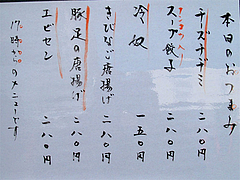 本日のおつまみ
チーズナナミ 二八〇円
スープ餃子 二八〇円
冷奴 一五〇円
きびなご唐揚げ 二八〇円
豚足の唐揚げ 二八〇円
エビセン 二八〇円
17時からのメニューです